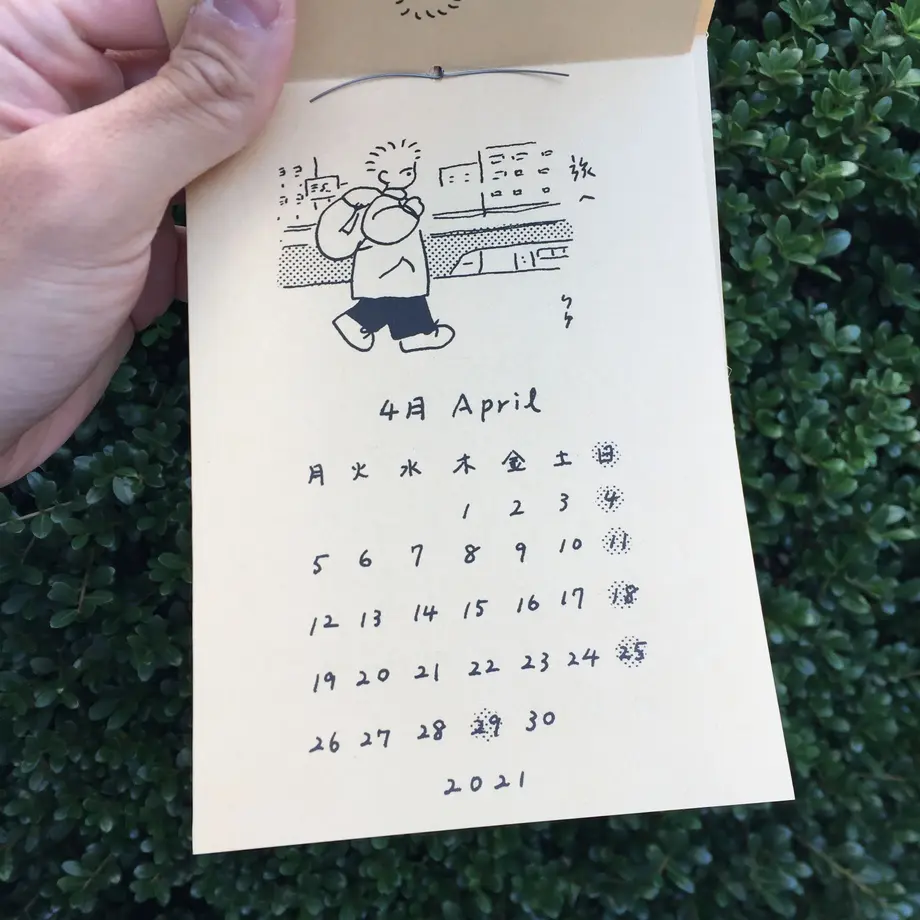 旅へ
4月 April
月 火 水 木 金 土 日
1 2 3 4
5 6 7 8 9 10 11
12 13 14 15 16 17 18
19 20 21 22 23 24 25
26 27 28 29 30
2021